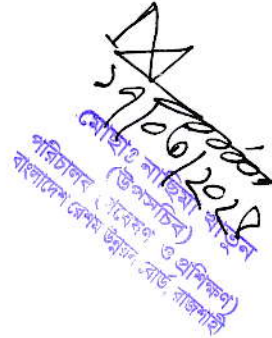 ১৭/০৬/২০২৪
মোছাঃ নাছিমা খাতুন
(উপসচিব)
পরিচালক (গবেষণা ও প্রশিক্ষণ)
বাংলাদেশ রেশম উন্নয়ন বোর্ড, রাজশাহী